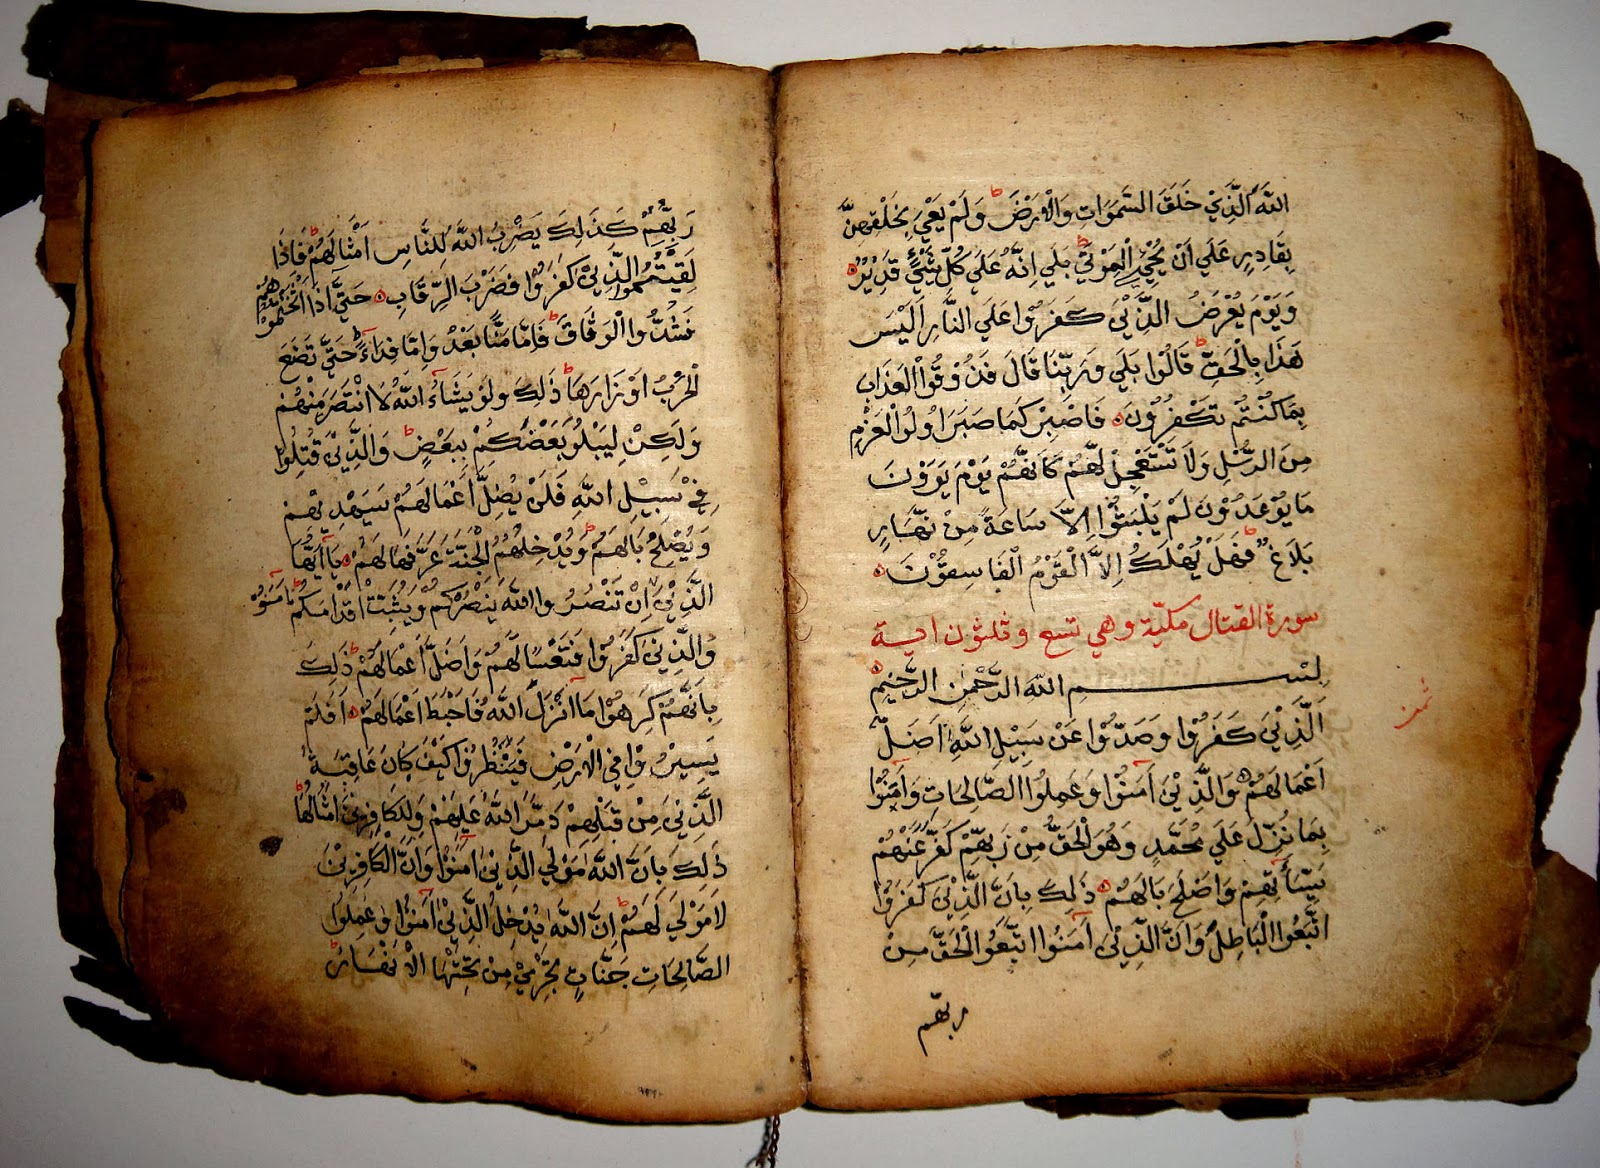 اللَّهَ الَّذِيْ خَلَقَ السَّمَوَاتِ وَالْاَرْضَ ط وَلَمْ يَعْيَ بِخَلْقِهِنَّ
بِقَادِرٍ عَلَي اَنْ يُحْيِيَ الْمَوْتَيط بَلَي اِنَّهُ عَلَي كُلِّ شَيْئٍ قَدِيْرٌ
وَيَوْمَ يُعْرَضُ الَّذِيْنَ كَفَرُوْا عَلَي النَّارِ اَلَيْسَ
هَذَا بِالْحَقِّ ط قَالُوْا بَلَي وَرَبِّنَا قَالَ فَذُوْقُوْا الْعَذَابَ
بِمَا كُنْتُمْ تَكْفُرُوْنَ فَاصْبِرْ كَمَا صَبَرَ اُولُوْا الْعَزْمِ
مِنَ الرُّسُلِ وَلَا تَسْتَعْجِلْ لَهُمْ كَاَنَّهُمْ يَوْمَ يَرَوْنَ
مَا يُوْعَدُوْنَ لَمْ يَلْبَثُوْا اِلَّا سَاعَةً مِنْ نَهَارٍ
بَلَاغٌ ط فَهَلْ يُهْلَكُ اِلَّا الْقَوْمُ الْفَاسِقُوْنَ
سورة القتال مكيّة وهي تسع وثلثون اية
بِسْمِ اللهِ الرَّحْمٰنِ الرَّحِيْمِ
اَلَّذِيْنَ كَفَرُوْا وَصَدُّوْا عَنْ سَبِيْلِ اللَّهِ اَضَلَّ
اَعْمَالَهُمْ وَالَّذِيْنَ آمَنُوْا وَعَمِلُوا الصَّالِحَاتِ وَآمَنُوْا
بِمَا نُزِّلَ عَلَي مُحَمَّدٍ وَهُوَ الْحَقُّ مِنْ رَبِّهِمْ كَفَّرَ عَنْهُمْ
سَيِّآتِهِمْ وَاَصْلَحَ بَالَهُمْ ذَلِكَ بِاَنَّ الَّذِيْنَ كَفَرُوْا
اتَّبَعُوْا الْبَاطِلَ وَاَنَّ الَّذِيْنَ آمَنُوْا اتَّبَعُوْا الْحَقَّ مِنْ
ربهم
رَبِّهِمْ كَذَلِكَ يَضْرِبُ اللَّهُ لِلنَّاسِ اَمْثَالَهُمْ ط فَاِذَا
لَقِيْتُمُ الَّذِيْنَ كَفَرُوْا فَضَرْبَ الرِّقَابِ حَتَّي اِذَا اَثْخَنْتُمُوْهُمْ
فَشُدُّوا الْوَثَاقَ ط فَاِمَّا مَنًّا بَعْدُ وَاِمَّا فِدَآءً ط حَتَّي تَضَعَ
الْحَرْبُ اَوْزَارَهَا ط ذَلِكَ وَلَوْ يَشَآءُ اللَّهُ لَا انْتَصَرَ مِنْهُمْ
وَلَكِنْ لِيَبْلُوَ بَعْضَكُمْ بِبَعْضٍ ط وَالَّذِيْنَ قُتِلُوا
فِيْ سَبِيْلِ اللَّهِ فَلَنْ يُضِلَّ اَعْمَالَهُمْ سَيَهْدِيْهِمْ
وَيُصْلِحُ بَالَهُمْ ط وَيُدْخِلُهُمُ الْجَنَّةَ عَرَّفَهَا لَهُمْ يَآاَيُّهَا
الَّذِيْنَ آمَنُوْا اِنْ تَنْصُرُوا اللَّهَ يَنْصُرْكُمْ وَيُثَبِّتْ اَقْدَامَكُمْ ط
وَالَّذِيْنَ كَفَرُوْا فَتَعْسًا لَهُمْ وَاَضَلَّ اَعْمَالَهُمْ ط ذَلِكَ
بِاَنَّهُمْ كَرِهُوْا مَآ اَنْزَلَ اللَّهُ فَاَحْبَطَ اَعْمَالَهُمْ اَفَلَمْ
يَسِيْرُوْا فِي الْاَرْضِ فَيَنْظُرُوْا كَيْفَ كَانَ عَاقِبَةُ
الَّذِيْنَ مِنْ قَبْلِهِمْ دَمَّرَ اللَّهُ عَلَيْهِمْ وَلِلْكَافِرِيْنَ اَمْثَالُهَا ط
ذَلِكَ بِاَنَّ اللَّهَ مَوْلَي الَّذِيْنَ آمَنُوْا وَاَنَّ الْكَافِرِيْنَ
لَا مَوْلَي لَهُمْ ط اِنَّ اللَّهَ يُدْخِلُ الَّذِيْنَ آمَنُوْا وَعَمِلُوا
الصَّالِحَاتِ جَنَّاتٍ تَجْرِيْ مِنْ تَحْتِهَا الْاَنْهَارُ ط